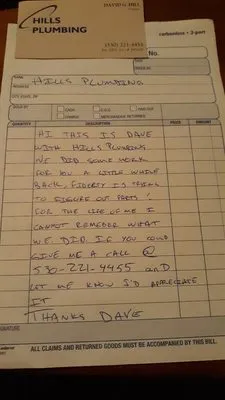 DAVID G. HILL
HILLS
PLUMBING
(530) 221-4455
carbonless • 3-part
No.
NAME
HILLS PLUMBING
ADDRESS
CITY, STATE, ZIP
SOLD BY
CASH
C.O.D.
PAID OUT
CHARGE
MERCHANDISE RETURNED
QUANTITY
DESCRIPTION
PRICE
AMOUNT
HI THIS IS DAVE
WITH HILLS PLUMBING
WE DID SOME WORK
FOR YOU A LITTLE WHILE
BACK, FIDERTY IS TRYING
TO FIGURE OUT PARTS!
FOR THE LIFE OF ME I
CANNOT REMEDER WHAT
WE DID. IF YOU COULD
GIVE ME A CALL @
530-221-4455 AND
LET ME KNOW I'D APPRECIATE
IT
THANKS DAVE
SIGNATURE
ALL CLAIMS AND RETURNED GOODS MUST BE ACCOMPANIED BY THIS BILL.